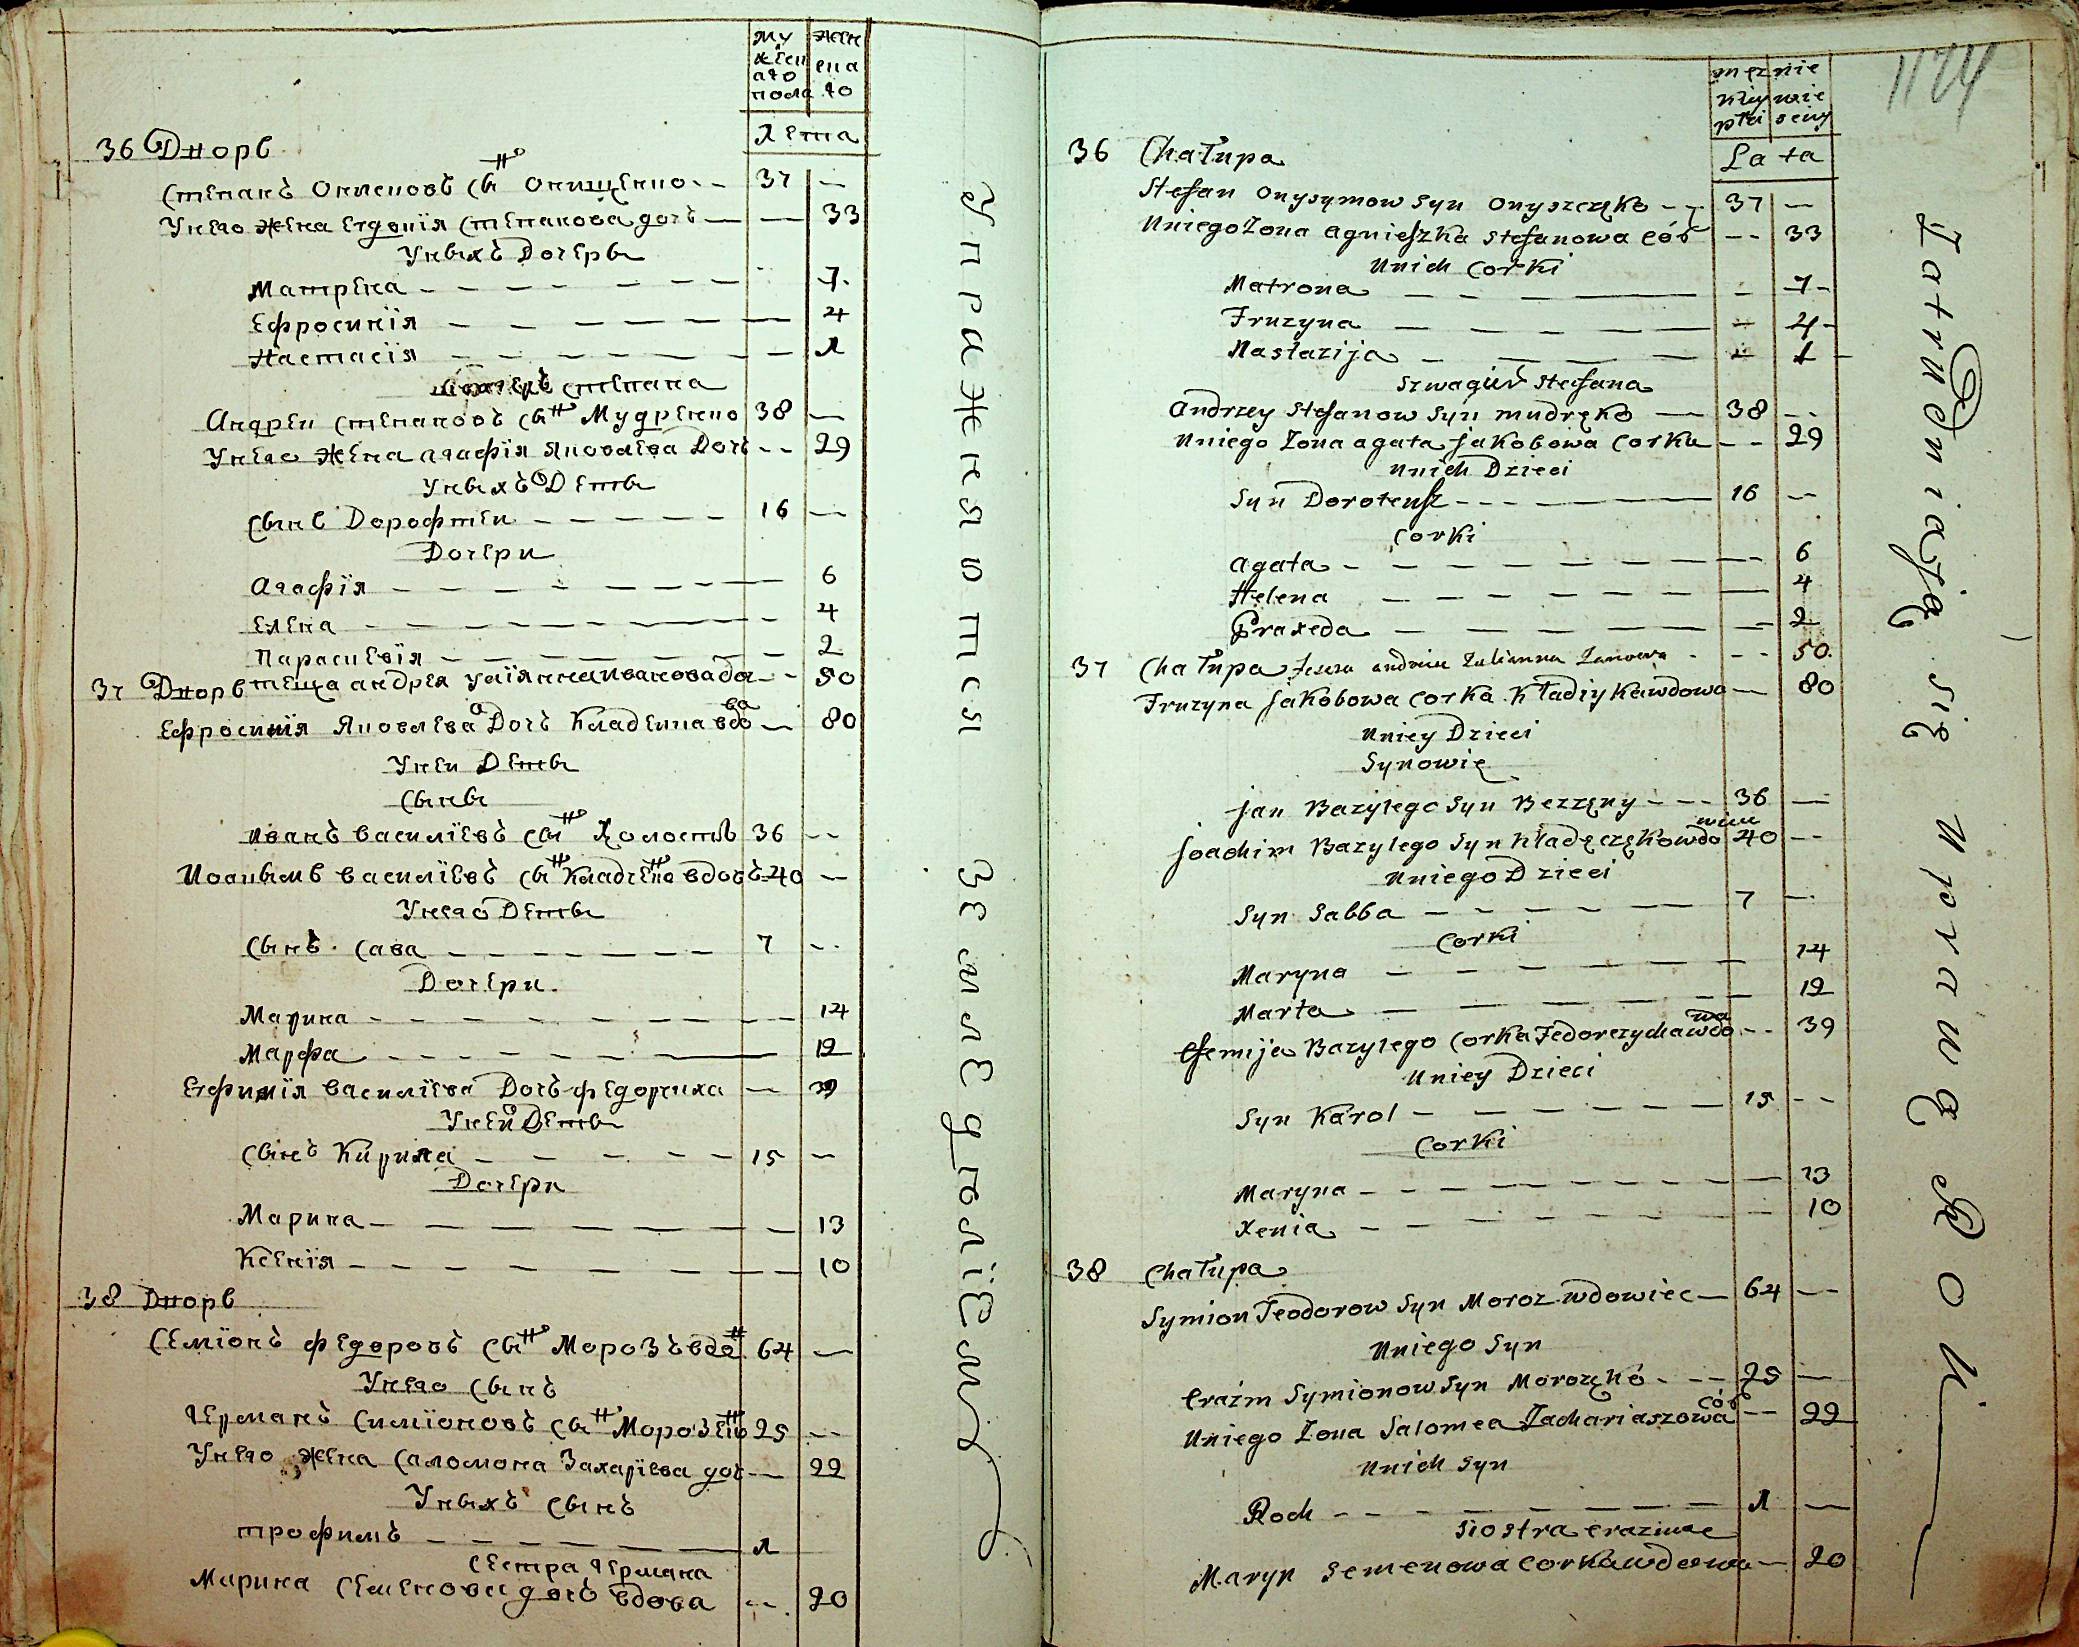 му жен
жеск ена
аго го
пола
Лета
36 Дворъ
Степанъ Онисковъ сынъ Онищенко -- 37 —
У него жена Евдокія Степанова дочъ — — 33
У ныхъ Дочеры
Матрена — 7
Ефросинія — 4
Настасія — 1
Степана
Андреи Степановъ сынъ Мудренко 38 —
У него жена Агафія Яковлева Дочъ -- 29
У ныхъ Деты
Сынъ Дорофтеи — 16 —
Дочери
Агафія — 6
Елена — 4
Парасковія — 2
37 Дворъ теща Андрея Улїянна Иванова до -- 50
Ефросинія Яковлева Дочъ Кладкина вдова — 80
У неи Деты
Сыны
Иванъ Василїевъ сынъ Холостъ 36 --
Иоакымъ Василїевъ сынъ Кладченко вдовъ 40 —
У него Деты
Сынъ Сава — 7 --
Дочери
Марина — 14
Марфа — 12
Евфимія Василїева Дочъ Федорчиха — 39
У неи Деты
Сынъ Кирила — 15 —
Дочери
Марина — 13
Ксенія — 10
38 Дворъ
Семїонъ Федоровъ сынъ Морозъ вдо 64 —
У него сынъ
Германъ Симїоновъ сынъ Морозенко 25 --
У него жена Саломона Захарїева доч — 22
У ныхъ сынъ
Трофимъ — 1
Сестра Германа
Марина Семенова дочъ вдова -- 20
Упражняются Земледѣлїем
1124
męz nie
kiey wie
płci sciy
Lata
36 Chałupa
Stefan Onysymow Syn Onyszczęko -- 37 —
Uniego Zona Agnieszka Stefanowa Cór -- 33
Unich Corki
Matrona — 7
Fruzyna — 4
Nastazija — 1
Szwagier Stefana
Andrzey Stefanow Syn Mudręko — 38 --
Uniego Zona Agata Jakobowa Corka -- 29
Unich Dzieci
Syn Doroteusz — 16 --
Corki
Agata — 6
Helena — 4
Praxeda — 2
37 Chałupa Andreiu Zulianna Janowa --- 50
Fruzyna Jakobowa Corka Kładiykawdowa — 80
Uniey Dzieci
Synowie
Jan Bazylego Syn Bezzęny --- 36 —
Joachim Bazylego Syn Kładęczęko wdowiec 40 --
Uniego Dzieci
Syn Sabba — 7 —
Corki
Maryna — 14
Marta — 12
Efemija Bazylego Corka Fedorczycha wdowa -- 39
Uniey Dzieci
Syn Karol — 15 --
Corki
Maryna — 13
Xenia — 10
38 Chałupa
Symion Teodorow Syn Moroz wdowiec — 64 --
Uniego Syn
Erazm Symionow Syn Morozęko --- 25 —
Uniego Zona Salomea Zachariaszowa cór -- 22
Unich Syn
Roch — 1 —
Siostra Erazma
Maryn Semenowa Corka wdowa — 20
Zatrudniają się Uprawą Roli